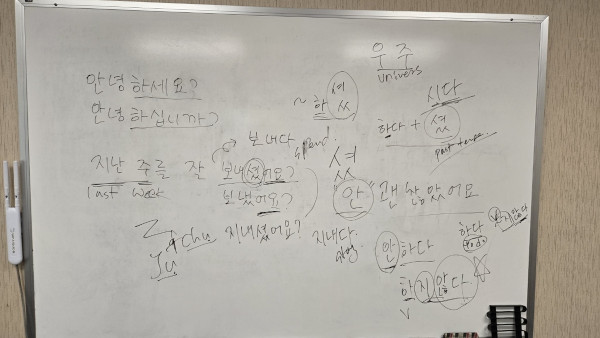 안녕하세요?
안녕하십니까?
지난 주를 잘 보내셨어요?
last week
보냈어요?
보내다
spend
지내셨어요? 지내다
stay
Z
Ju
chu
~하셨
셨
"안" 괜찮았어요
우주
universs
시다
하다 + 셨
past tense
안하다
하다
to do
하지않다
v